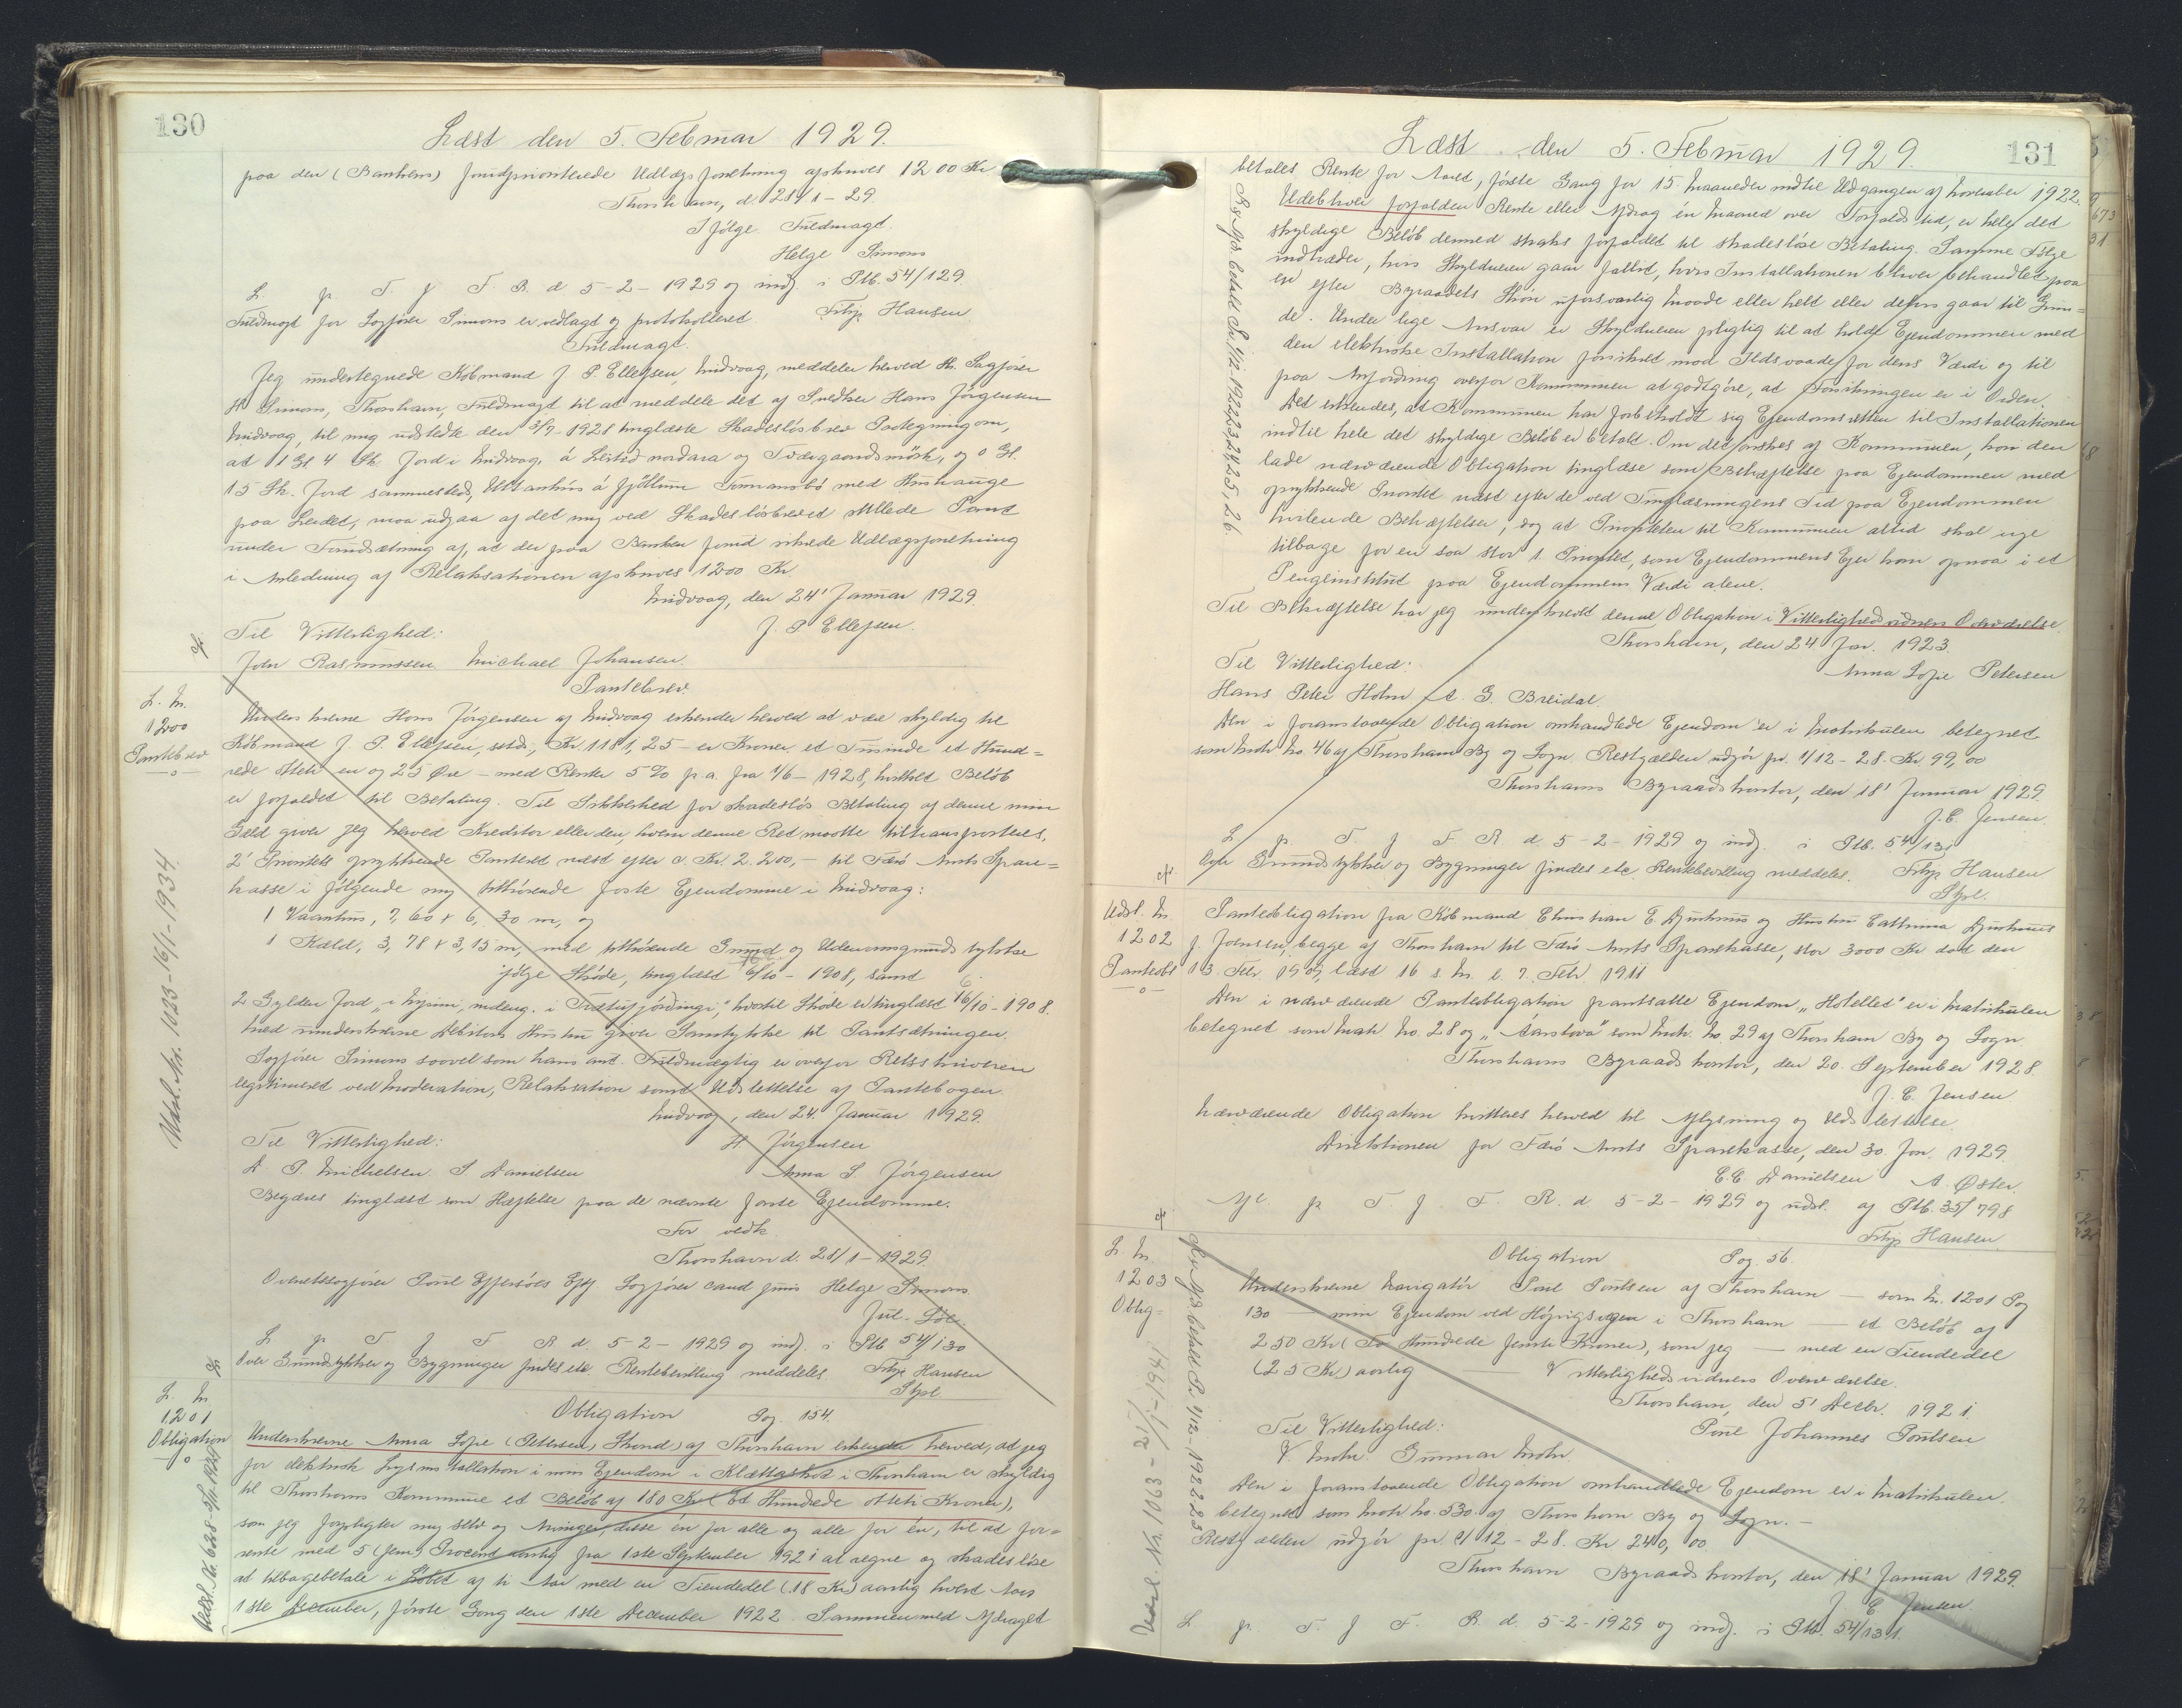 130
Læst den 5. Februar 1929.
paa den (Bankens) fondprioriterede Udlægsforretning afskrives 1200 Kr
Thorshavn, d. 28/1 - 29.
Ifølge Fuldmagt.
Helge Simons
L. p. T. f. F. R. d. 5-2-1929 og indf. i Ptb. 54/129.
Fuldmagt for Sagfører Simons er vedlagt og protokolleret. Filip Hansen
Fuldmagt.
Jeg undertegnede Købmand J. P. Ellefsen, Midvaag, meddeler herved Hr. Sagfører
H. Simons, Thorshavn, Fuldmagt til at meddele det af Snedker Hans Jørgensen
Midvaag, til mig udstedte den 3/7-1928 tinglæste Skadesløsbrev Paategning om,
at 1 Gl. 4 Sk. Jord i Midvaag, á og , og 0 Gl.
15 Sk. Jord sammesteds, á med
paa Leidet, maa udgaa af det mig ved Skadesløsbrevet stillede Pant
under Forudsætning af, at der paa Banken fond sikrede Udlægsforretning
i Anledning af Relaksationen afskrives 1200 Kr.
Midvaag, den 24' Januar 1929.
Til Vitterlighed: J. P. Ellefsen.
John Rasmussen Michael Johansen.
L. N.
1200
Pantebrev
Pantebrev
Underskrevne Hans Jørgensen af Midvaag erkender herved at være skyldig til
Købmand J. P. Ellefsen, sstds., Kr. 1181,25 - er Kroner et Tusinde et Hund=
rede otteti en og 25 Øre - med Renter 5 % p. a. fra 1/6-1928, hvilket Beløb
er forfaldet til Betaling. Til Sikkerhed for skadesløs Betaling af denne min
Gæld giver jeg herved Kreditor eller den, hvem denne Ret maatte tiltransporteres,
2' Prioritets oprykkende Panteret næst efter c. Kr. 2.200,- til Færø Amts Spare=
kasse i følgende mig tilhørende faste Ejendomme i Midvaag:
1 Vaanhus, 7,60 x 6,30 m, og
1 Kæld., 3,78 x 3,15 m, med tilhørende Grund og Udenomsgrunds tykke
ifølge Skøde, tinglæst 6/10-1908, samt
2 Gylden Jord, hvortil Skøde er tinglæst 16/10-1908.
Med underskrevne Debitors Hustru giver Samtykke til Pantsætningen.
Sagfører Simons saavel som hans aut. Fuldmægtig er overfor Retsskriveren
legitimeret ved Moderation, Relaksation samt Udslettelse af Pantebogen
Midvaag, den 24. Januar 1929.
Til Vitterlighed: H. Jørgensen
D. P. Michelsen. S Danielsen Anna S. Jørgensen
Begæres tinglæst som Hæftelse paa de nævnte faste Ejendomme.
For vedk.
Thorshavn d. 28/1-1929
Overretssagfører Poul Effersöes Eftf. Sagfører cand juris Helge Simons.
L. p. T. f. F. R. d. 5-2-1929 og indf. i Ptb 54/130
Over Grundstykker og Bygninger findes etc. Rentebevilling meddeles. Filip Hansen
Stpl.
Udsl. Nr. 1023-16/1-1934.
L. N.
1201
Obligation
Obligation Pag. 154.
Underskrevne Anna Sofie (Petersen, Strond) af Thorshavn erkender herved, at jeg
for elektrisk Lysinstallation i min Ejendom i Klættaskot i Thorshavn er skyldig
til Thorshavns Kommune et Beløb af 180 Kr (Et Hundrede otteti Kroner),
som jeg forpligter mig selv og Arvinger, disse én for alle og alle for én, til at for=
rente med 5 (fem) Procent aarlig fra 1ste September 1921 at regne og skadesløse
at tilbagebetale i Løbet af ti Aar med en Tiendedel (18 Kr) aarlig hvert Aars
1ste December, første Gang den 1ste December 1922. Sammen med Afdraget
131
Læst den 5. Februar 1929.
betales Rente for Aaret, første Gang for 15. Maaneder indtil Udgangen af November 1922.
Udebliver forfalden Rente eller Afdrag én Maaned over Forfaldstid, er hele det
skyldige Beløb dermed straks forfaldet til skadesløse Betaling. Samme Følge
indtræder, hvis Skyldneren gaar fallit, hvis Installationen bliver behandlet paa
en efter Byraadets Skøn uforsvarlig Maade eller helt eller delvis gaar til Grun=
de. Under lige Ansvar er Skyldneren pligtig til at holde Ejendommen med
den elektriske Installation forsikret mod Ildsvaade for dens Værdi og til
paa Anfordring overfor Kommunen at godtgøre, at Forsikringen er i Orden.
Det erkendes, at Kommunen har forbeholdt sig Ejendomsretten til Installationen
indtil hele det skyldige Beløb er betalt. Om det ønskes af Kommunen, kan den
lade nærværende Obligation tinglæse som Behæftelse paa Ejendommen med
oprykkende Prioritet næst efter de ved Tinglæsningens Tid paa Ejendommen
hvilende Behæftelser, dog at Prioriteten til Kommunen altid skal vige
tilbage for en saa stor 1 Prioritet, som Ejendommens Ejer kan opnaa i et
Pengeinstitut paa Ejendommens Værdi alene.
Til Bekræftelse har jeg underskrevet denne Obligation i Vitterlighedsvidners Overværelse.
Thorshavn, den 24 Jan. 1923.
Til Vitterlighed: Anna Sofie Petersen
Hans Peter Holm A. G. Breidal.
Den i foranstaaende Obligation omhandlede Ejendom er i Matrikulen betegnet
som Matr. No. 46 af Thorshavn By og Sogn. Restgælden udgør pr. 1/12-28. Kr. 99,00
Thorshavns Byraadskontor, den 18' Januar 1929.
J. E. Jensen.
L. p. T. f. F. R. d. 5-2-1929 og indf. i Ptb. 54/131
Over Grundstykker og Bygninger findes etc. Rentebevilling meddeles. Filip Hansen
Stpl.
Udsl. N.
1202
Panteobl
Panteobligation fra Købmand Christian E. Djurhuus og Hustru Cathrina Djurhuus
f. Joensen, begge af Thorshavn til Færø Amts Sparekasse, stor 3000 Kr dat den
13. Febr. 1909, læst 16 s. M. l. 7. Febr. 1911
Den i nærværende Panteobligation pantsatte Ejendom "Hotellet" er i Matrikulen
betegnet som Matr No. 28 og "Áarstova" som Matr. No 29 af Thorshavn By og Sogn.
Thorshavns Byraads kontor, den 20. September 1928.
J. E. Jensen
Nærværende Obligation kvitteres herved til Aflysning og Udslettelse.
Direktionen for Færø Amts Sparekasse, den 30. Jan. 1929.
E. E. Danielsen A. Øster.
Afl. p. T. f. F. R. d. 5-2-1929 og udsl. af Ptb. 35/798
Filip Hansen.
L. N.
1203
Oblig=
Obligation Pag. 56.
Underskrevne Navigatör Poul Poulsen af Thorshavn — som Nr. 1201 Pag
130 — min Ejendom ved Höjvigsvejen i Thorshavn — et Beløb af
250 Kr (To Hundrede femti Kroner), som jeg — med en Tiendedel
(25 Kr) aarlig — Vitterlighedsvidners Overværelse.
Thorshavn, den 5' Decbr. 1921.
Til Vitterlighed: Poul Johannes Poulsen
V. Mohr. Gunnar Mohr.
Den i foranstaaende Obligation omhandlede Ejendom er i Matrikulen.
betegnet som Matr No. 530. af Thorshavn By og Sogn. -
Restgælden udgør pr. 1/12-28. Kr 240,00
Thorshavn Byraads kontor, den 18' Januar 1929.
J. E. Jensen.
L. p. T. f. F. R. d. 5-2-1929 og indf. i Ptb. 54/131.
Udsl. Nr. 1063-21/1-1941